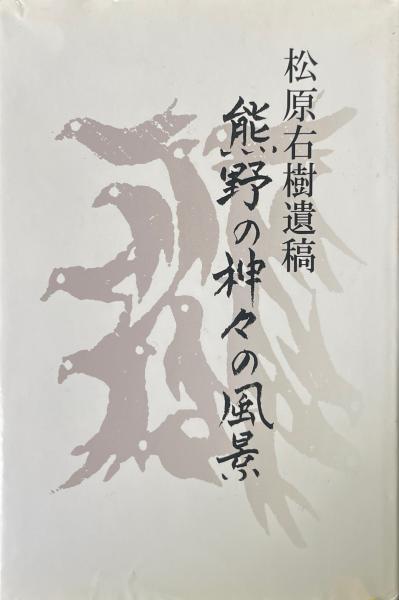 松原右樹遺稿
熊野の神々の風景